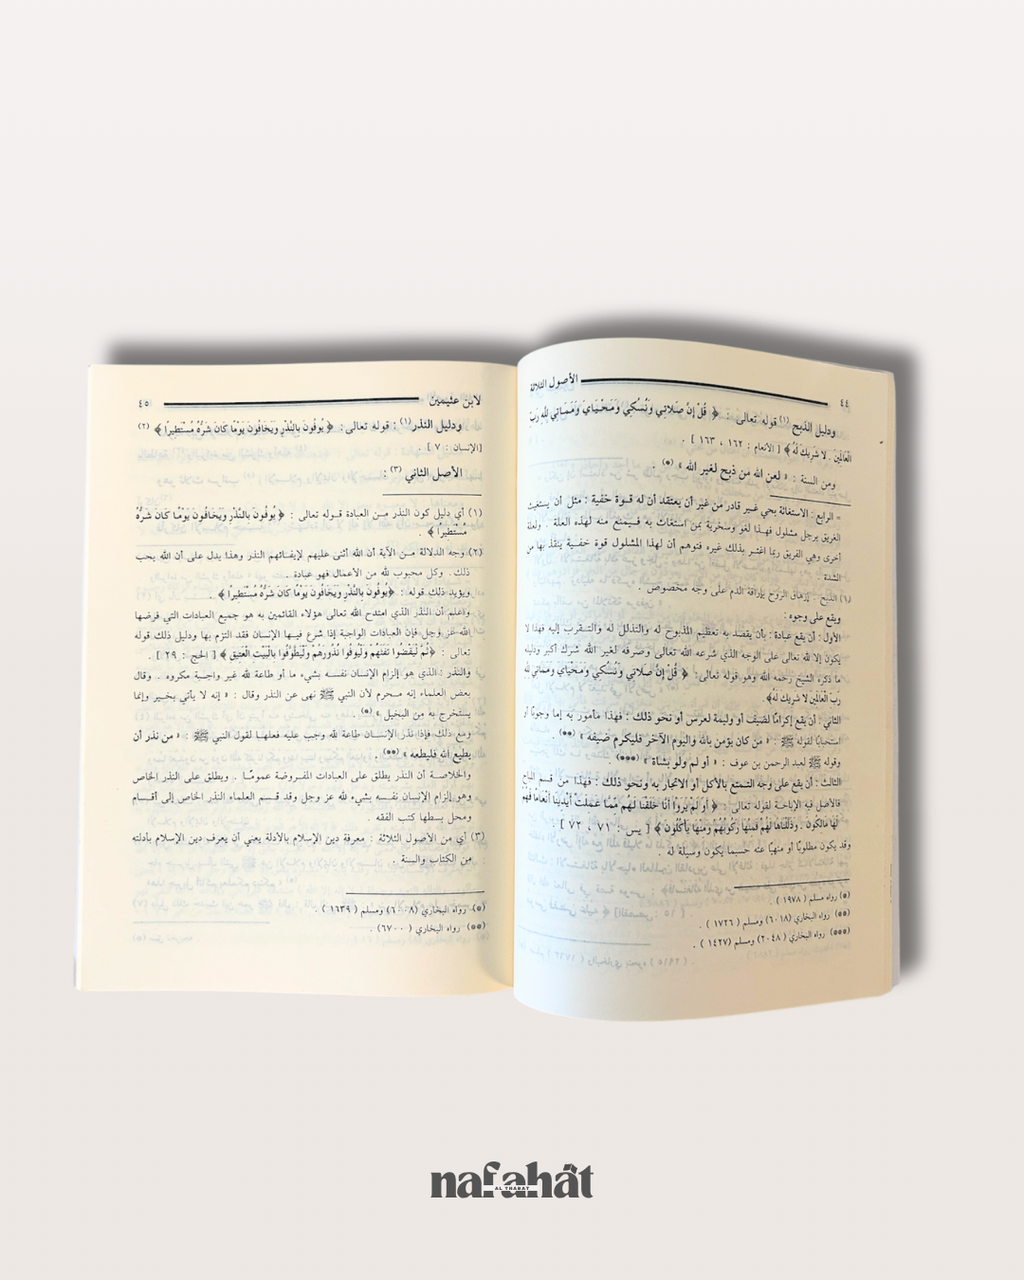 الأصول الثلاثة ٤٤
ودليل الذبح (١) قوله تعالى : ﴿ قُلْ إِنَّ صَلاتِي وَنُسُكِي وَمَحْيَايَ وَمَمَاتِي لِلَّهِ رَبِّ
الْعَالَمِينَ . لا شَرِيكَ لَهُ ﴾ [ الأنعام : ١٦٢ ، ١٦٣ ] .
ومن السنة : « لعن الله من ذبح لغير الله » (*) .
= الرابع : الاستغاثة بحي غير قادر من غير أن يعتقد أن له قوة خفية : مثل أن يستغيث
الغريق برجل مشلول فهذا لغو وسخرية بمن استغاث به فيمنع منه لهذه العلة . ولعلة
أخرى وهي الغريق ربما اغتر بذلك غيره فتوهم أن لهذا المشلول قوة خفية ينقذ بها من
الشدة .
(١) الذبح : إزهاق الروح بإراقة الدم على وجه مخصوص .
ويقع على وجوه :
الأول : أن يقع عبادة : بأن يقصد به تعظيم المذبوح له والتذلل له والتقرب إليه فهذا لا
يكون إلا لله تعالى على الوجه الذي شرعه الله تعالى وصرفه لغير الله شرك أكبر ودليله
ما ذكره الشيخ رحمه الله وهو قوله تعالى : ﴿ قُلْ إِنَّ صَلاتِي وَنُسُكِي وَمَحْيَايَ وَمَمَاتِي لِلَّهِ
رَبِّ الْعَالَمِينَ لا شَرِيكَ لَهُ ﴾
الثاني : أن يقع إكرامًا لضيف أو وليمة لعرس أو نحو ذلك : فهذا مأمور به إما وجوبًا أو
استحبابًا لقوله ﷺ : « من كان يؤمن بالله واليوم الآخر فليكرم ضيفه » (**) .
وقوله ﷺ لعبد الرحمن بن عوف : « أو لم ولو بشاة » (***) .
الثالث : أن يقع على وجه التمتع بالأكل أو الاتجار به ونحو ذلك : فهذا من قسم المباح
فالأصل فيه الإباحة لقوله تعالى : ﴿ أَوَ لَمْ يَرَوْا أَنَّا خَلَقْنَا لَهُم مِّمَّا عَمِلَتْ أَيْدِينَا أَنْعَامًا فَهُمْ
لَهَا مَالِكُونَ . وَذَلَّلْنَاهَا لَهُمْ فَمِنْهَا رَكُوبُهُمْ وَمِنْهَا يَأْكُلُونَ ﴾ [ يس : ٧١ ، ٧٢ ] .
وقد يكون مطلوبًا أو منهيًا عنه حسبما يكون وسيلة له .
(*) رواه مسلم ( ١٩٧٨ ) .
(**) رواه البخاري (٦٠١٨) ومسلم ( ١٧٢٦ ) .
(***) رواه البخاري (٢٠٤٨) ومسلم (١٤٢٧) .
لابن عثيمين ٤٥
ودليل النذر(١) : قوله تعالى : ﴿ يُوفُونَ بِالنَّذْرِ وَيَخَافُونَ يَوْمًا كَانَ شَرُّهُ مُسْتَطِيرًا ﴾ (٢)
[الإنسان : ٧ ] .
الأصل الثاني (٣) :
(١) أي دليل كون النذر من العبادة قوله تعالى : ﴿ يُوفُونَ بِالنَّذْرِ وَيَخَافُونَ يَوْمًا كَانَ شَرُّهُ
مُسْتَطِيرًا ﴾ .
(٢) وجه الدلالة من الآية أن الله أثنى عليهم لإيفائهم النذر وهذا يدل على أن الله يحب
ذلك . وكل محبوب لله من الأعمال فهو عبادة .
ويؤيد ذلك قوله : ﴿يُوفُونَ بِالنَّذْرِ وَيَخَافُونَ يَوْمًا كَانَ شَرُّهُ مُسْتَطِيرًا ﴾ .
واعلم أن النذر الذي امتدح الله تعالى هؤلاء القائمين به هو جميع العبادات التي فرضها
الله عز وجل فإن العبادات الواجبة إذا شرع فيها الإنسان فقد التزم بها ودليل ذلك قوله
تعالى : ﴿ثُمَّ لْيَقْضُوا تَفَثَهُمْ وَلْيُوفُوا نُذُورَهُمْ وَلْيَطَّوَّفُوا بِالْبَيْتِ الْعَتِيقِ ﴾ [ الحج : ٢٩ ] .
والنذر : الذي هو إلزام الإنسان نفسه بشيء ما أو طاعة لله غير واجبة مكروه . وقال
بعض العلماء إنه محرم لأن النبي ﷺ نهى عن النذر وقال : « إنه لا يأتي بخير وإنما
يستخرج به من البخيل » (*) .
ومع ذلك فإذا نذر الإنسان طاعة لله وجب عليه فعلها لقول النبي ﷺ : « من نذر أن
يطيع الله فليطعه » (**) .
والخلاصة أن النذر يطلق على العبادات المفروضة عمومًا . ويطلق على النذر الخاص
وهو إلزام الإنسان نفسه بشيء لله عز وجل وقد قسم العلماء النذر الخاص إلى أقسام
ومحل بسطها كتب الفقه
(٣) أي من الأصول الثلاثة : معرفة دين الإسلام بالأدلة يعني أن يعرف دين الإسلام بأدلته
من الكتاب والسنة .
(*) رواه البخاري (٦٠٠٨) ومسلم ( ١٦٣٩ ) .
(**) رواه البخاري (٦٧٠٠) .
nafahât
AL THABAT